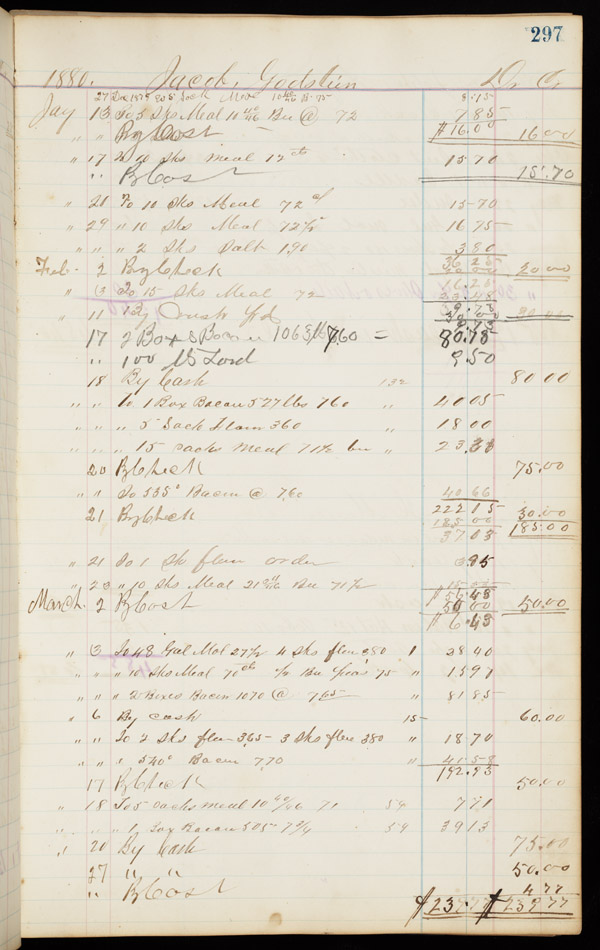 297
1880. Jacob, Godstein Dr Cr
27 Dec 1879 8.15
Jay 13 To 5 Sks Meal 10 40/46 Bu @ 72 7 85
" " By Cost $16.00 16 00
" 17 10 Sks meal 15 70
" By Cost 15.70
" 21 To 10 Sks Meal 72 15 70
" 29 " 10 Sks Meal 72½ 16 75
" " " 2 Sks Salt 190 3 80
Feb. 2 By Check 20 00
" 13 To 15 Sks Meal 72
" 11 By
17 2 Box Bacon 1063 lbs 7.60 = 80.75
" 100 lbs Lard 9.50
18 By Cash 80 00
" " To 1 Box Bacon 527 lbs 760 " 40 05
" " " 5 Sack 360 " 18 00
" " " 15 sacks Meal 71½ bu "
20 By Check 75.00
" " To 535° Bacon @ 7.60 40 66
21 By Check 222 15 30.00
185 00 185.00
37 03
" 21 To 1 Sk flour order
" 23 " 10 Sks Meal 21 Bu 71½
$56.48
March. 2 By Cost 50 00 50.00
$ 6.43
" 3 To 48 Gal Mol 27½ 4 Sks flour 380 1 28 40
" " " 10 Sks Meal 70 75 " 15 97
" " " 2 Boxes Bacon 1070 @ 7.65 " 81 85
" 6 By cash 15 60.00
" " To 2 Sks flour 365 - 3 Sks flour 380 " 18.70
" " " 540° Bacon 770 41.58
192.93
17 By Check 50.00
" 18 To 5 sacks meal 10 40/46 71 54 7 71
" " " 1 Box Bacon 505 7¾ 54 39 13
" 20 By Cash 75.00
27 " " 50.00
" By Cost 4 77
$ 239 77 $ 239 77